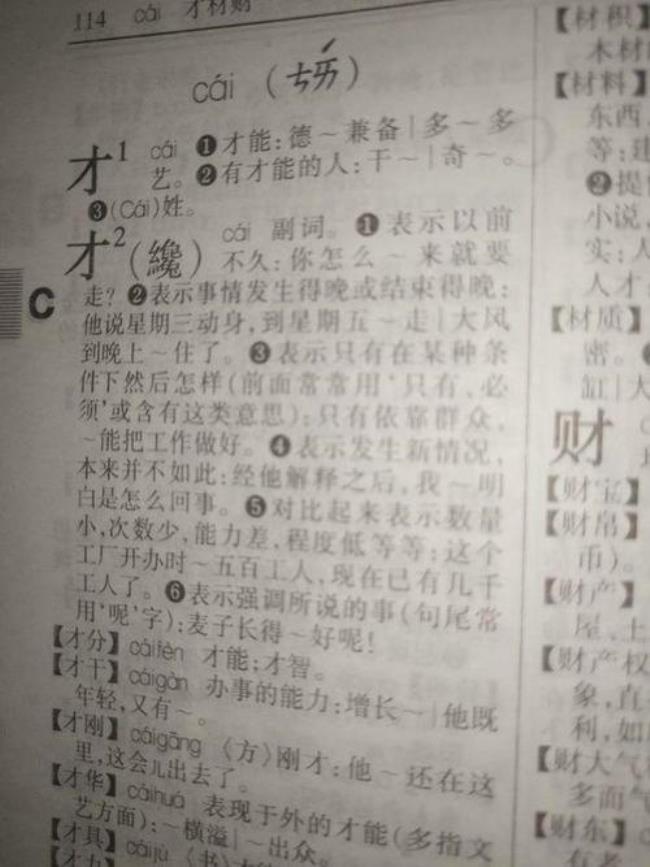 114 cái 才材财
cái (ㄘㄞˊ)
才1 cái ❶才能:德~兼备|多~多
艺。❷有才能的人:干~|奇~。
❸(Cái)姓。
才2(纔) cái 副词。❶表示以前
不久:你怎么~来就要
走?❷表示事情发生得晚或结束得晚:
他说星期三动身,到星期五~走|大风
到晚上~住了。❸表示只有在某种条
件下然后怎样(前面常常用‘只有、必
须’或含有这类意思):只有依靠群众,
~能把工作做好。❹表示发生新情况,
本来并不如此:经他解释之后,我~明
白是怎么回事。❺对比起来表示数量
小,次数少,能力差,程度低等等:这个
工厂开办时~五百工人,现在已有几千
工人了。❻表示强调所说的事(句尾常
用‘呢’字):麦子长得~好呢!
【才分】cáifèn 才能;才智。
【才干】cáigàn 办事的能力:增长~|他既
年轻,又有~。
【才刚】cáigāng 〈方〉刚才:他~还在这
里,这会儿出去了。
【才华】cáihuá 表现于外的才能(多指文
艺方面):~横溢|~出众。
【才具】cáijù 〈书〉
【材积】
木材
【材料】
东西
等:建
❷提
小说
实:人
人才
【材质】
密。
缸|大
财
【财宝】
【财帛】
币)。
【财产】
屋、土
【财产权
象,直
利,如
【财大气
多而气
【财东】